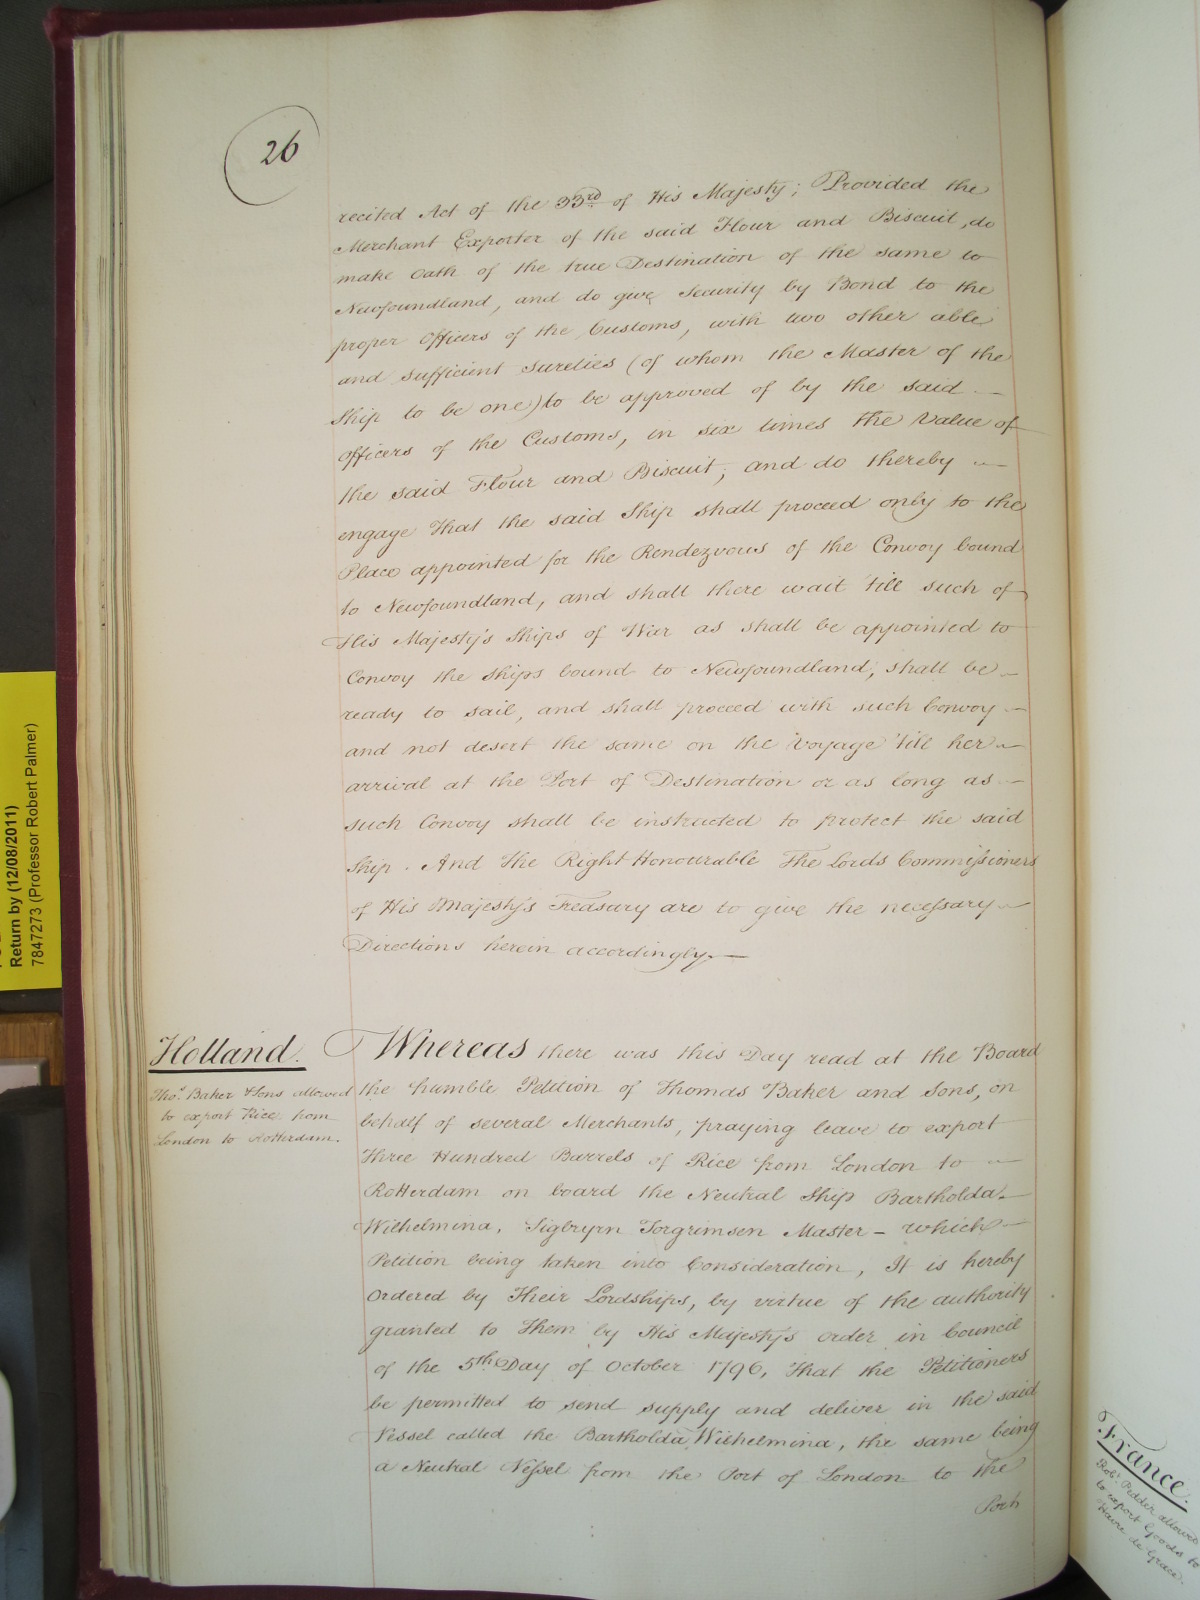 26
recited Act of the 33rd of His Majesty; Provided the
Merchant Exporter of the said Flour and Biscuit, do
make Oath of the true Destination of the same to
Newfoundland, and do give Security by Bond to the
proper Officers of the Customs, with two other able
and sufficient sureties (of whom the Master of the
Ship to be one) to be approved of by the said
Officers of the Customs, in six times the Value of
the said Flour and Biscuit; and do thereby
engage that the said Ship shall proceed only to the
Place appointed for the Rendezvous of the Convoy bound
to Newfoundland, and shall there wait 'till such of
His Majesty's Ships of War as shall be appointed to
Convoy the Ships bound to Newfoundland, shall be
ready to sail, and shall proceed with such Convoy
and not desert the same on the Voyage 'till her
arrival at the Port of Destination or as long as
such Convoy shall be instructed to protect the said
Ship. And The Right Honourable The Lords Commissioners
of His Majesty's Treasury are to give the necessary
Directions herein accordingly.
Holland.
Thos. Baker & Sons allowed
to export Rice from
London to Rotterdam.
Whereas there was this Day read at the Board
the humble Petition of Thomas Baker and Sons, on
behalf of several Merchants, praying leave to export
Three Hundred Barrels of Rice from London to
Rotterdam on board the Neutral Ship Bartholda
Wilhelmina, Sigbryrn Torgrimsen Master - which
Petition being taken into Consideration, It is hereby
Ordered by Their Lordships, by virtue of the authority
granted to Them by His Majesty's Order in Council
of the 5th Day of October 1796, That the Petitioners
be permitted to send supply and deliver in the said
Vessel called the Bartholda Wilhelmina, the same being
a Neutral Vessel from the Port of London to the
Port
France.
Robt. Pedder allowed
to export Goods to
Havre de Grace.
Return by (12/08/2011)
7847273 (Professor Robert Palmer)